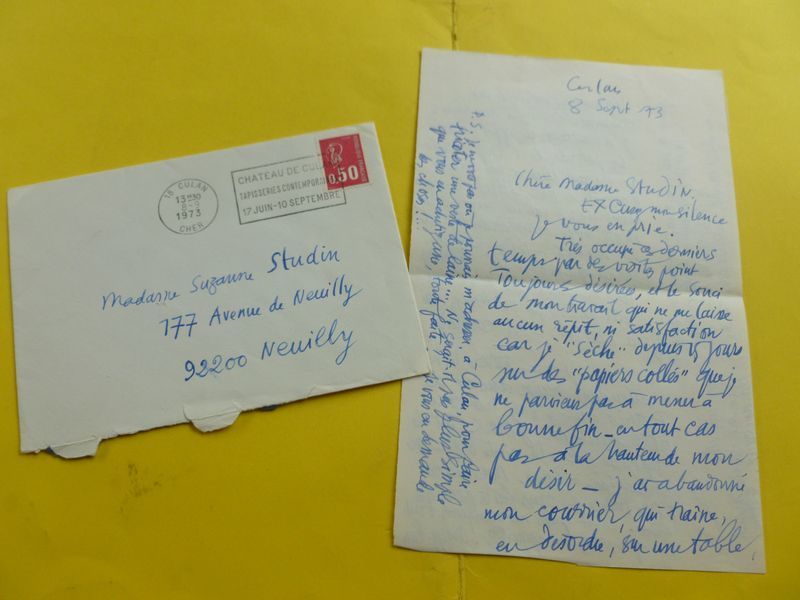 18 CULAN
13H30
8-9
1973
CHER
CHATEAU DE CULAN
TAPISSERIES CONTEMPORAINES
17 JUIN-10 SEPTEMBRE
0,50
Madame Suzanne Studin
177 Avenue de Neuilly
92200 Neuilly
Culan
8 Sept 73
Chère Madame STUDIN,
EXCusez mon silence
je vous en prie.
Très occupé ces derniers
temps par des visites point
Toujours désirées, et le souci
de mon travail qui ne me laisse
aucun répit, ni satisfaction
car je "sèche" depuis 15 jours
sur des "papiers collés" que je
ne parviens pas à mener à
bonne fin - en tout cas
pas à la hauteur de mon
désir - j'ai abandonné
mon courrier, qui traîne,
en désordre, sur une table,
P.S. je ne vois pas où je pourrais m'adresser à Culan, pour faire
de laine... Ne serait-il pas plus simple
que vous
toute faite je vous en demande